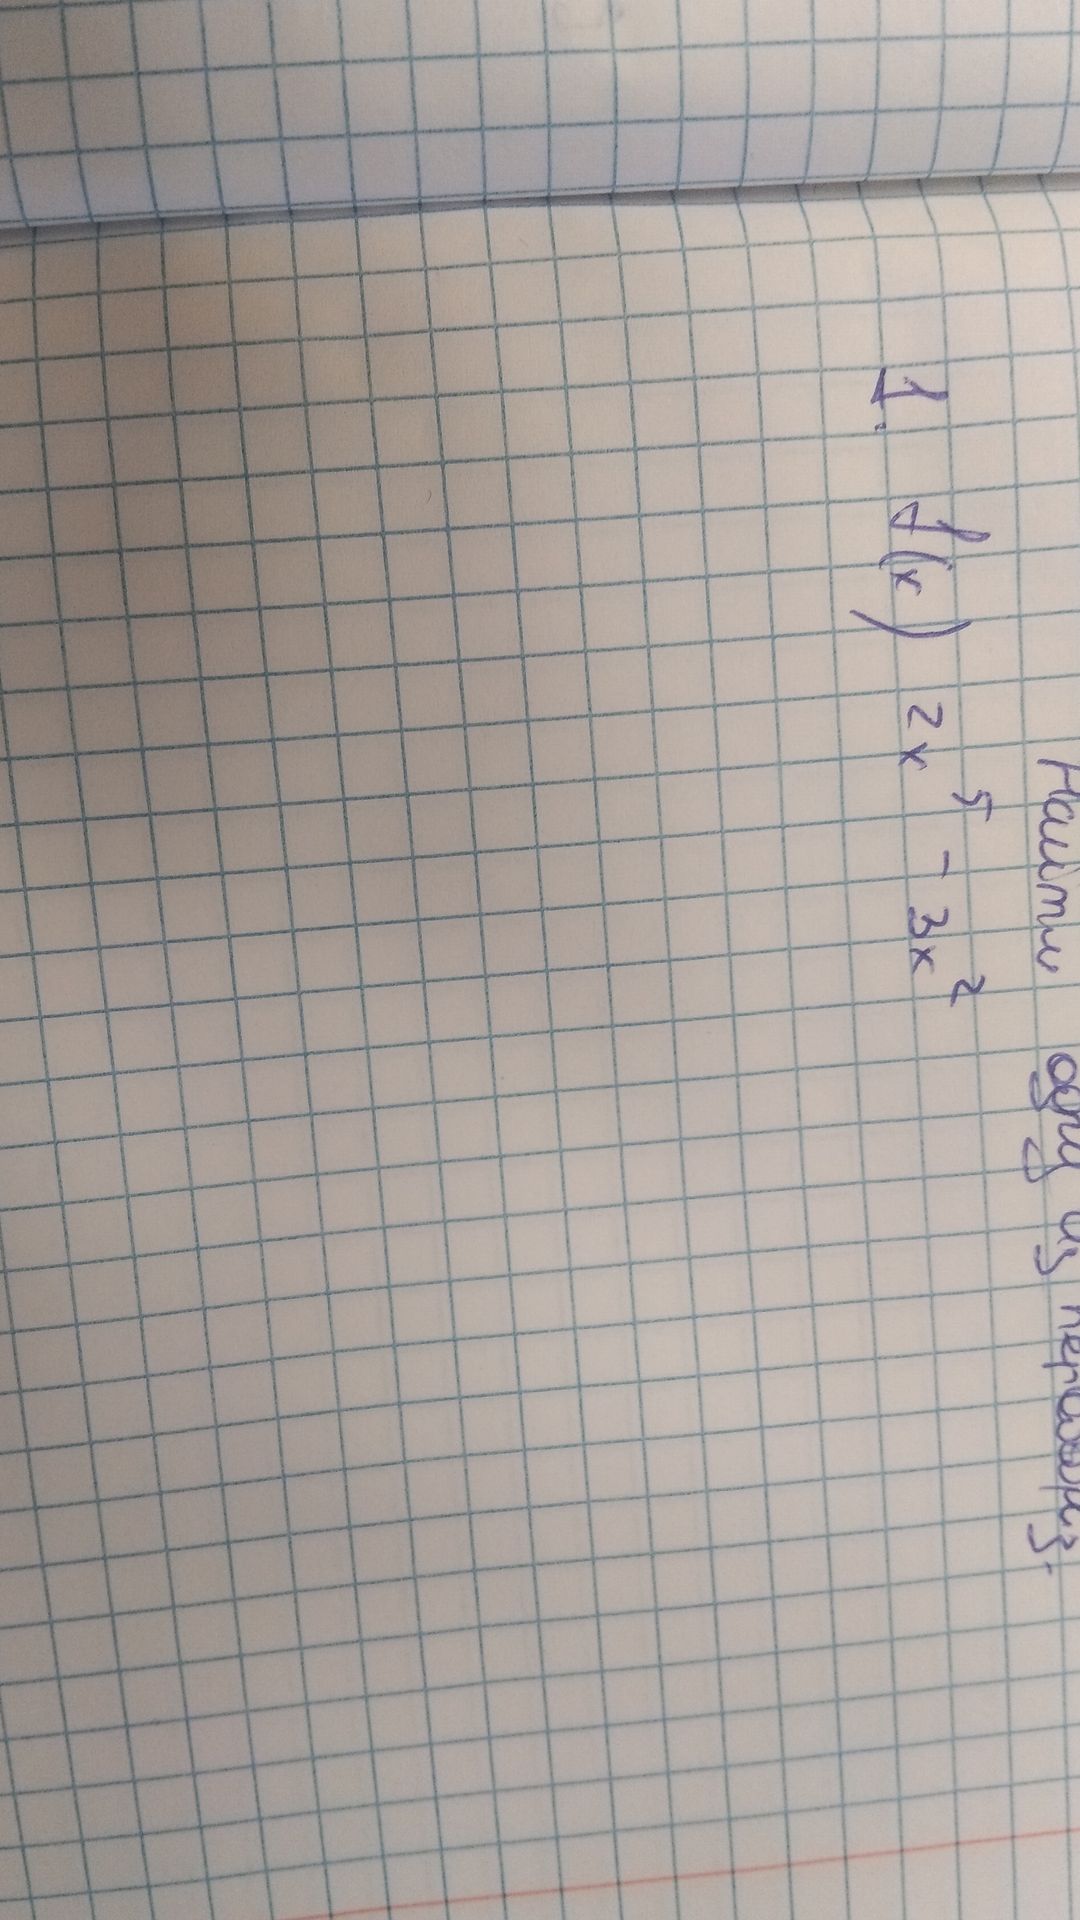 Найти одну из первообриз.
1. f(x) 2x⁵ - 3x²